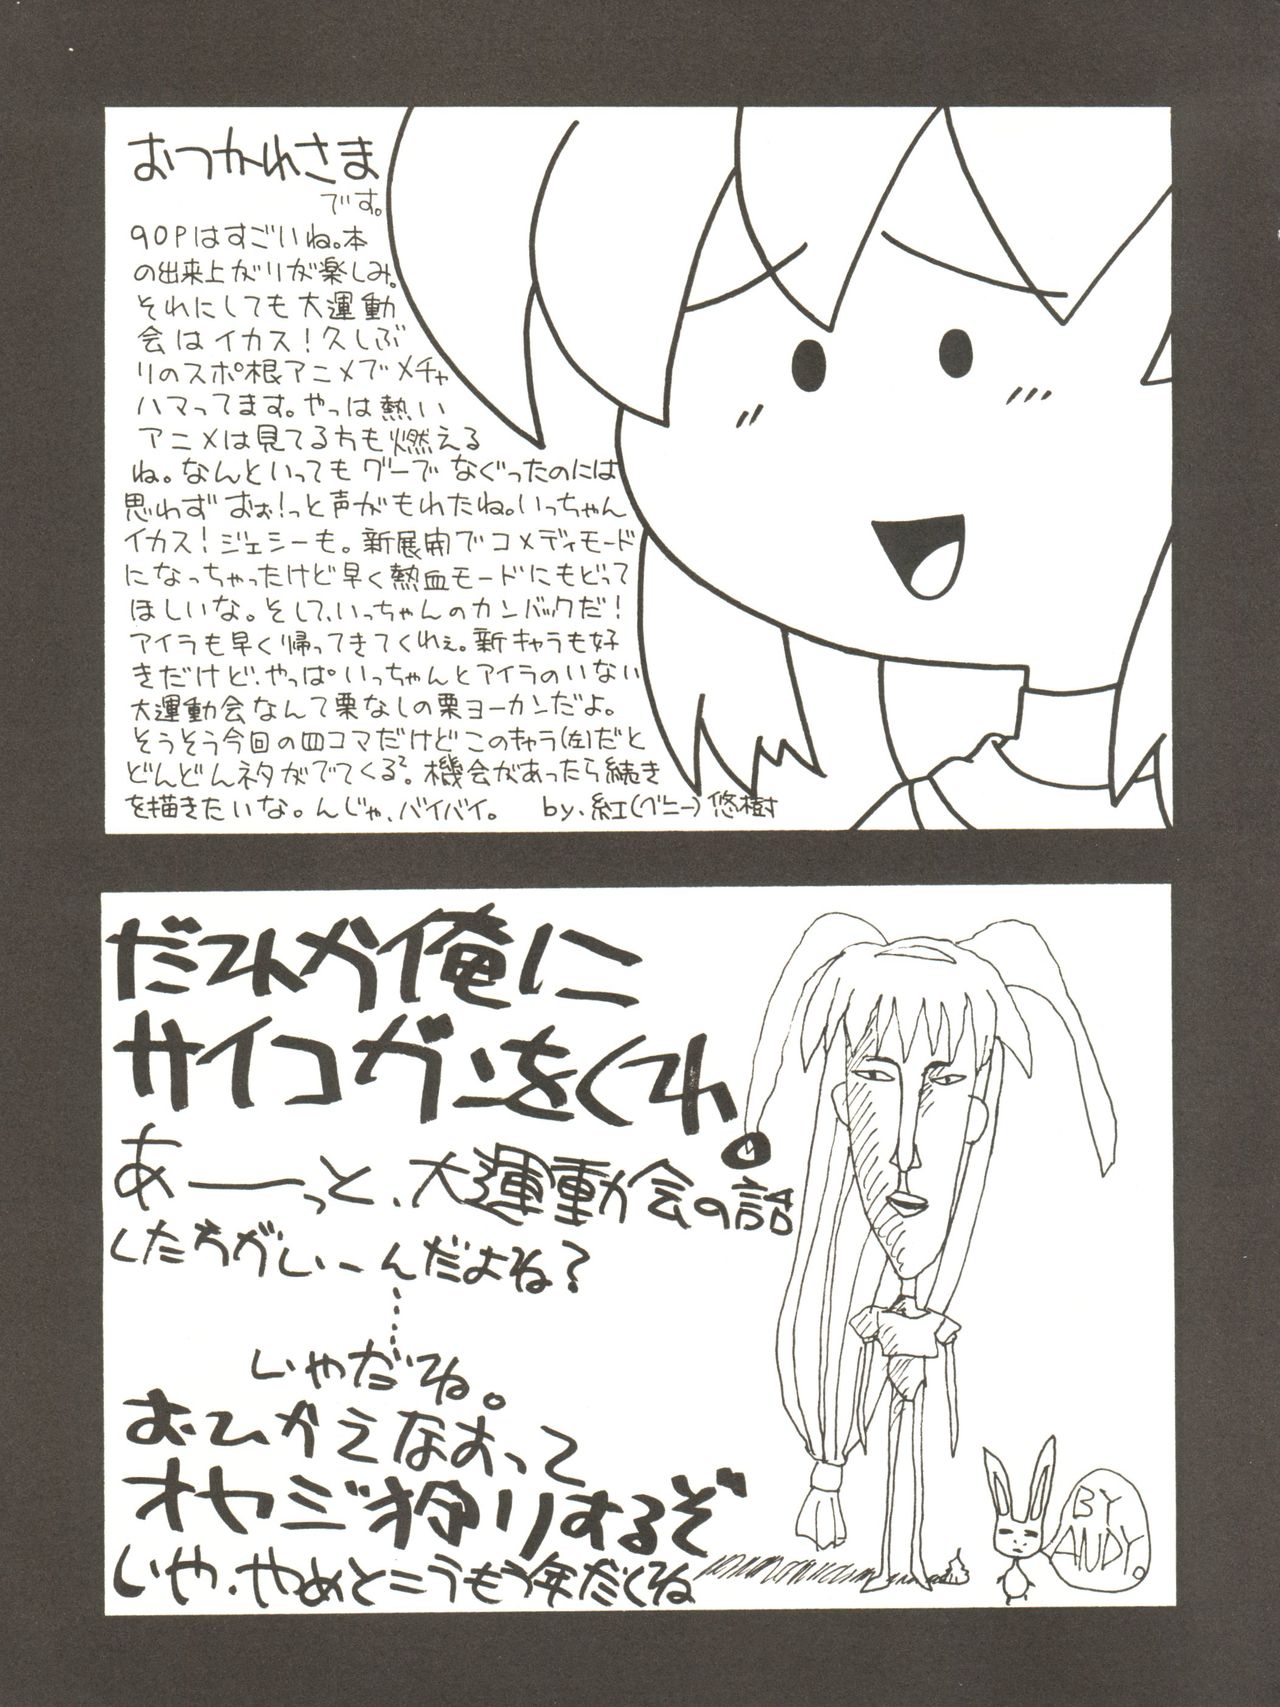 おつかれさま
です。
90Pはすごいね。本
の出来上がりが楽しみ。
それにしても大運動
会はイカス!久しぶ
りのスポ根アニメでメチャ
ハマってます。やっは熱い
アニメは見てる方も燃える
ね。なんといってもグーでなぐったのには
思わずおぉ!っと声がもれたね。いっちゃん
イカス!ジェシーも。新展開でコメディモード
になっちゃったけど早く熱血モードにもどって
ほしいな。そして、いっちゃんのカンバックだ!
アイラも早く帰ってきてくれぇ。新キャラも好
きだけど、やっぱいっちゃんとアイラのいない
大運動会なんて栗なしの栗ヨーカンだよ。
そうそう今回の四コマだけどこのキャラ(左)だと
どんどんネタがでてくる²。機会があったら続き
を描きたいな。んじゃ、バイバイ。 by.紅(グニー)悠樹
だれか俺に
サイコガンをくれ。
あーーっと、大運動会の話
したちがいーんだよね?
……
いやだね。
おひかえなすって
オヤジ狩りするぞ
いや、やめとこうもう年だくね
BY
ANDY.